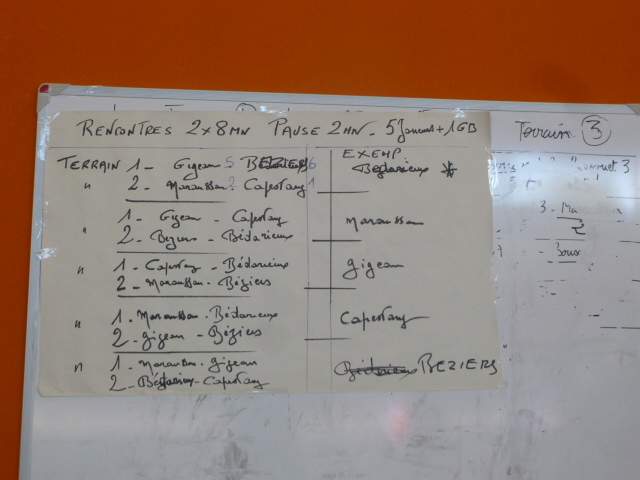 RENCONTRES 2x8MN PAUSE 2MN - 5 Joueurs + 1 GB
Terrain 3
EXEMP
TERRAIN 1 - Gigean 5 BEZIERS 6
Bédarieux *
" 2 - Maraussan 2 Capestang 1
1 - Gigean - Capestang
Maraussan
" 2 - Beziers - Bédarieux
" 1 - Capestang - Bédarieux
gigean
2 - Maraussan - Béziers
1 - Maraussan - Bédarieux
Capestang
" 2 - gigean - Béziers
" 1 - Maraussan - gigean
BEZIERS
2 - Bédarieux - Capestang